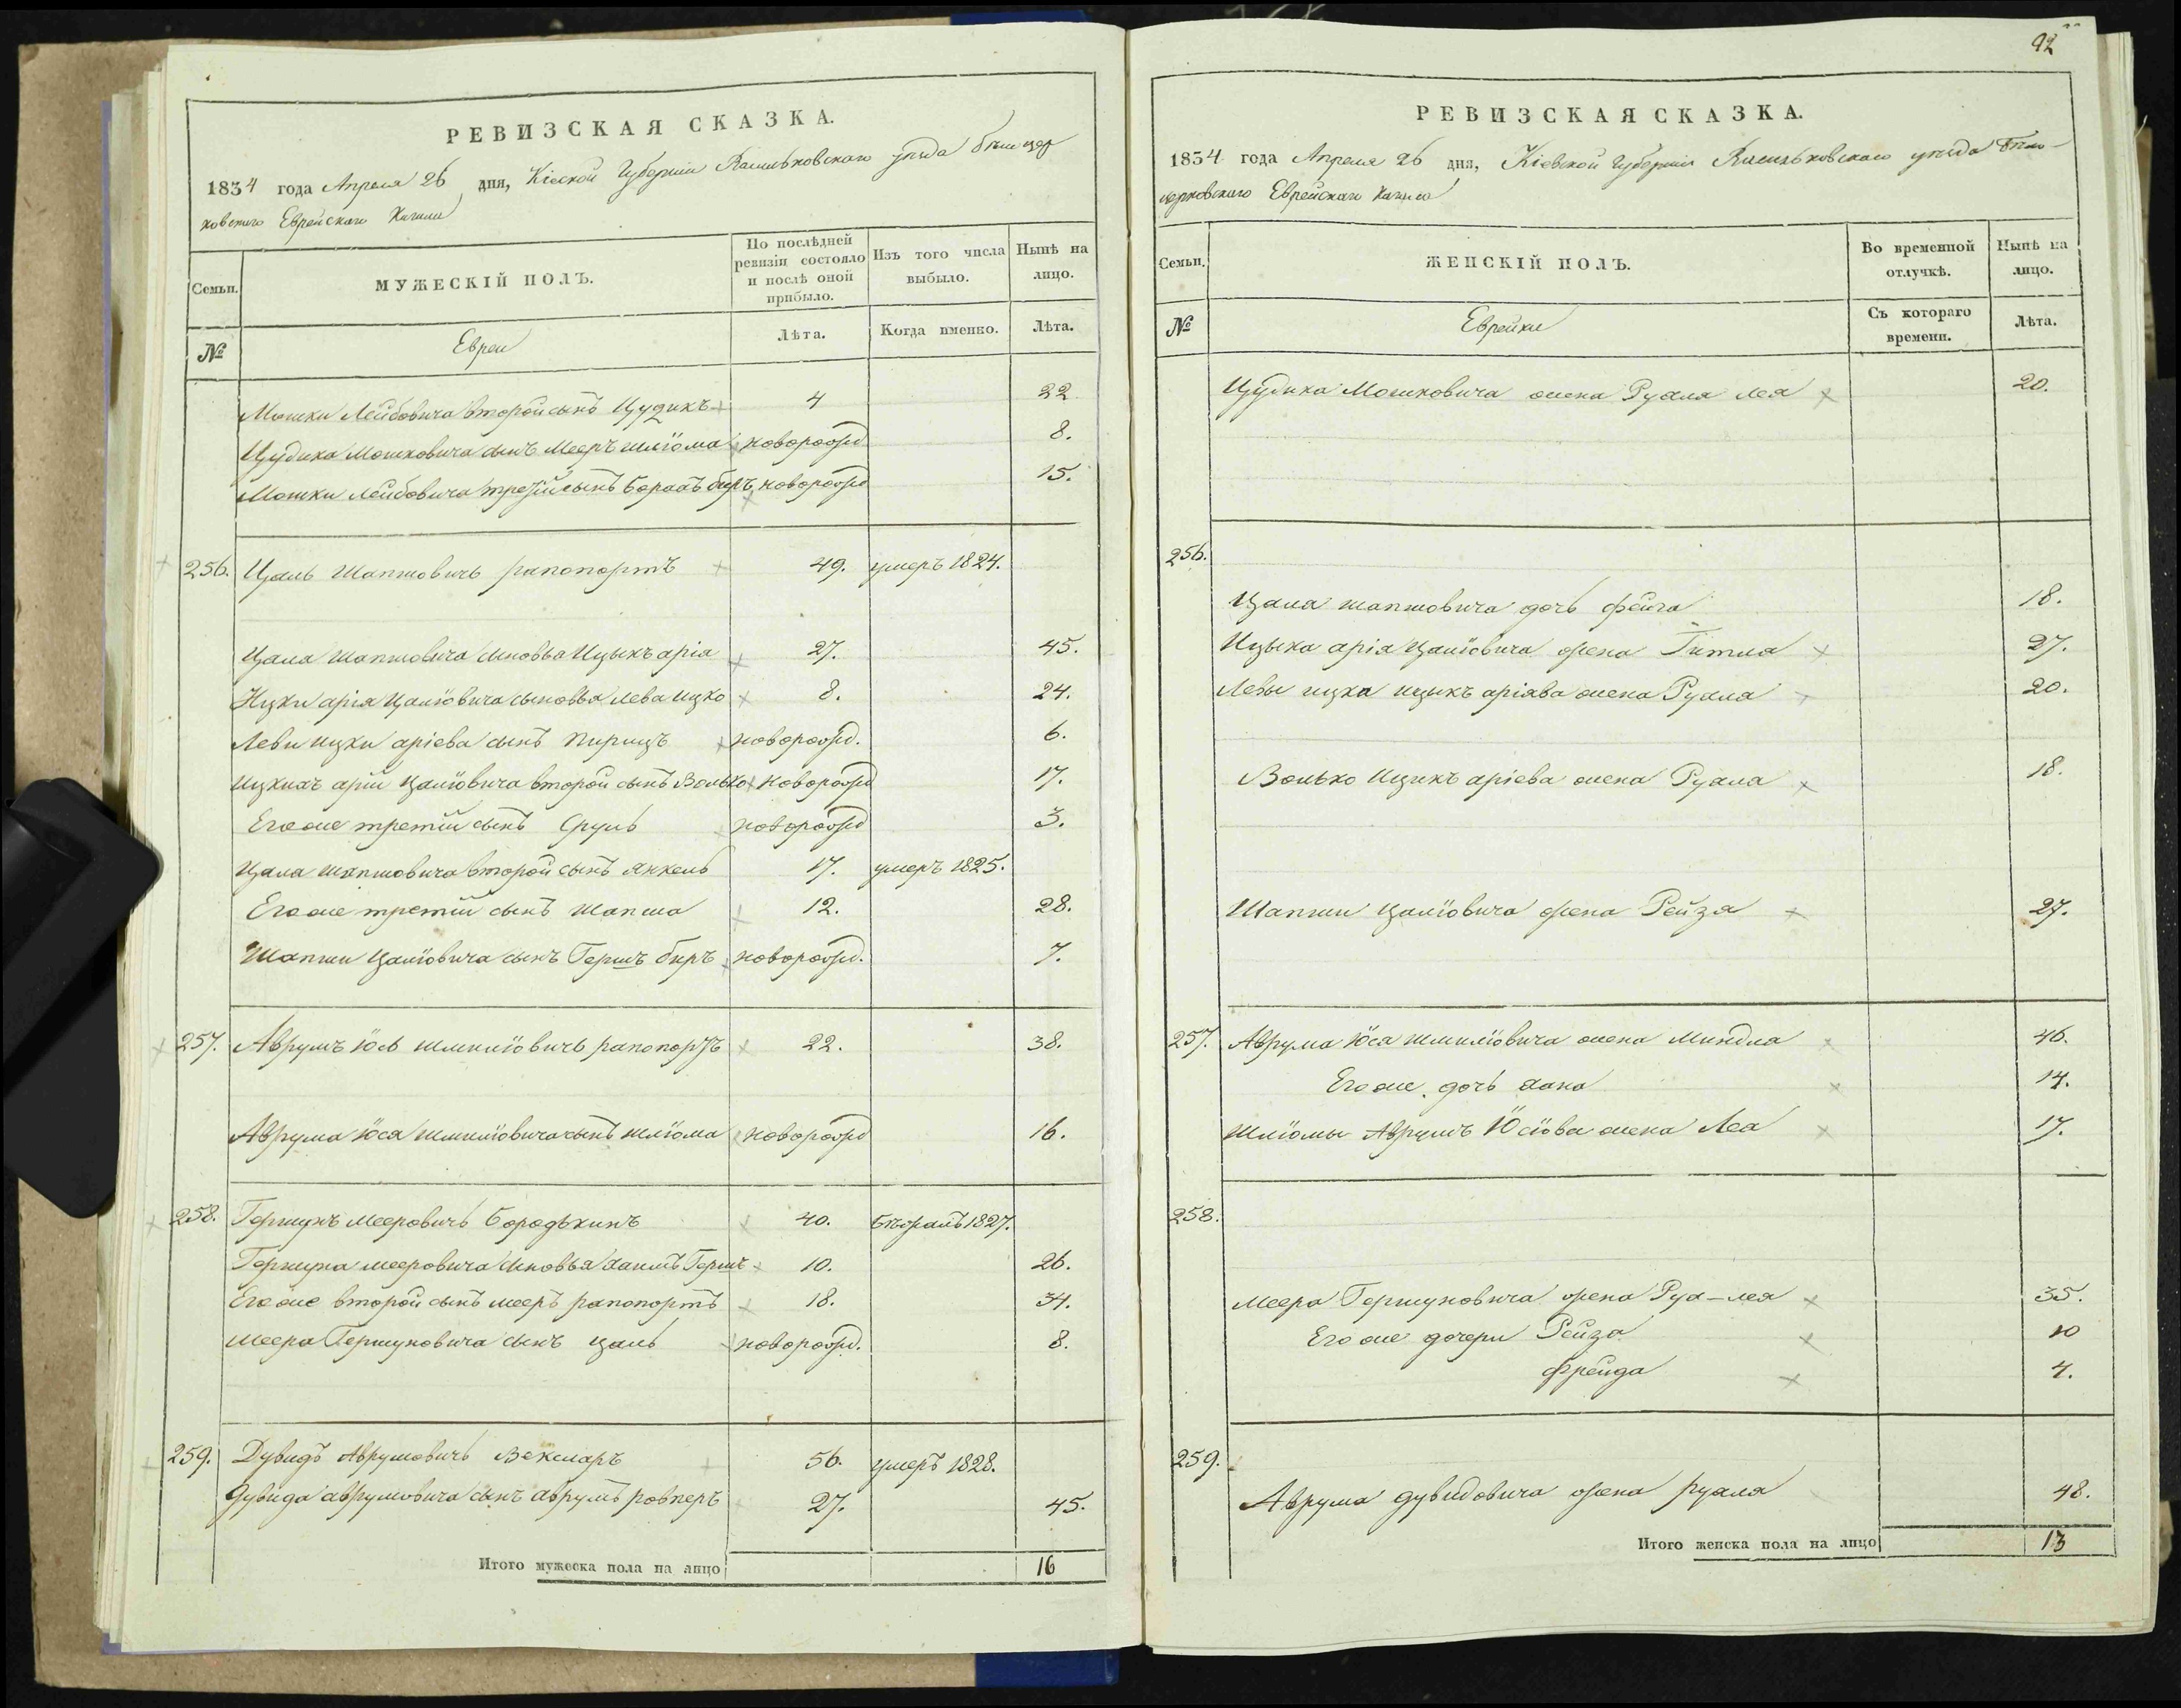 РЕВИЗСКАЯ СКАЗКА.
1834 года Апреля 26 дня, Кіевской Губерніи Васильковскаго уѣзда бѣлоцер
ковскаго Еврейскаго Кагала
Семьи. МУЖЕСКІЙ ПОЛЪ. По послѣдней ревизіи состояло и послѣ оной прибыло. Изъ того числа выбыло. Нынѣ на лицо.
№ Евреи Лѣта. Когда именно. Лѣта.
Мошки Лейбовича второй сынъ Цудикъ 4 22
Цудика Мошковича сынъ Мееръ шліома новорожд 8.
Мошки Лейбовича третій сынъ берахъ, новорожд 15.
256. Цаль Шапшовичь рапопортъ 49. умеръ 1824.
Цаля Шапшовича сыновья Ицыкъ арія 27. 45.
Ицки арія Цаліовича сыновья Лева Ицко 8. 24.
Леви ицки аріева сынъ пирицъ новорожд. 6.
арія Цаліовича второй сынъ Волько новорожд 17.
Его же третій сынъ Сруль новорожд 3.
Цаля шапшовича второй сынъ Янкель 17. умеръ 1825.
Его же третій сынъ Шапша 12. 28.
Шапши Цаліовича сынъ Гершъ беръ новорожд. 7.
257. Аврумъ Іось Шмиліовичь рапопортъ 22. 38.
Аврума Іося Шмиліовича сынъ шліома новорожд 16.
258. Гершунъ Мееровичь Бородькинъ 40. бѣжалъ 1827.
Гершуна мееровича сыновья Хаимъ Гершъ 10. 26.
Его же второй сынъ мееръ рапопортъ 18. 34.
Меера Гершуновича сынъ цаль новорожд. 8.
259. Дувидъ Аврумовичь Векслеръ 56. умеръ 1828.
дувида аврумовича сынъ аврумъ 27. 45.
Итого мужеска пола на лицо 16
92
РЕВИЗСКАЯ СКАЗКА.
1834 года Апреля 26 дня, Кіевской Губерніи Васильковскаго уѣзда бѣло-
церковскаго Еврейскаго Кагала
Семьи. ЖЕНСКІЙ ПОЛЪ. Во временной отлучкѣ. Нынѣ на лицо.
№ Еврейки Съ котораго времени. Лѣта.
Цудика Мошковича жена Рухля лея 20.
256.
Цаля шапшовича дочь фейга 18.
Ицыка арія Цаліовича жена Гитля 27.
Левы ицка ицыкъ аріява жена Рухля 20.
Волько Ицикъ аріева жена Рухля 18.
Шапши Цаліовича жена Рейзя 27.
257. Аврума Іося шмиліовича жена Миндля 46.
Его же дочь хана 14.
Шліомы Аврумъ Іосіова жена Леа 17.
258.
Меера Гершуновича жена Руд-лея 35.
Его же дочери Рейза 10
фрейда 4.
259.
Аврума дувидовича жена рухля 48.
Итого женска пола на лицо 13